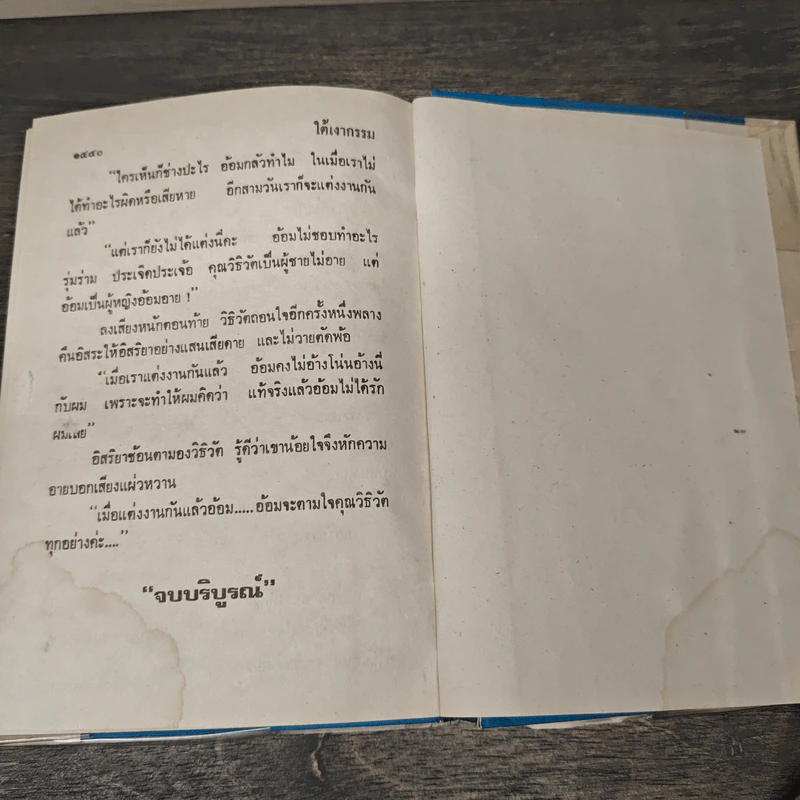 ใต้เงากรรม
๑๕๔๐
“ใครเห็นก็ช่างปะไร อ้อมกลัวทำไม ในเมื่อเราไม่
ได้ทำอะไรผิดหรือเสียหาย อีกสามวันเราก็จะแต่งงานกัน
แล้ว”
“แต่เราก็ยังไม่ได้แต่งนี่คะ อ้อมไม่ชอบทำอะไร
รุ่มร่าม ประเจิดประเจ้อ คุณวิธิวัตเป็นผู้ชายไม่อาย แต่
อ้อมเป็นผู้หญิงอ้อมอาย !”
ลงเสียงหนักตอนท้าย วิธิวัตถอนใจอีกครั้งหนึ่งพลาง
คืนอิสระให้อิสริยาอย่างแสนเสียดาย และไม่วายตัดพ้อ
“เมื่อเราแต่งงานกันแล้ว อ้อมคงไม่อ้างโน่นอ้างนี่
กับผม เพราะจะทำให้ผมคิดว่า แท้จริงแล้วอ้อมไม่ได้รัก
ผมเลย”
อิสริยาช้อนตามองวิธิวัต รู้ดีว่าเขาน้อยใจจึงหักความ
อายบอกเสียงแผ่วหวาน
“เมื่อแต่งงานกันแล้วอ้อม.....อ้อมจะตามใจคุณวิธิวัต
ทุกอย่างค่ะ....”
“จบบริบูรณ์”